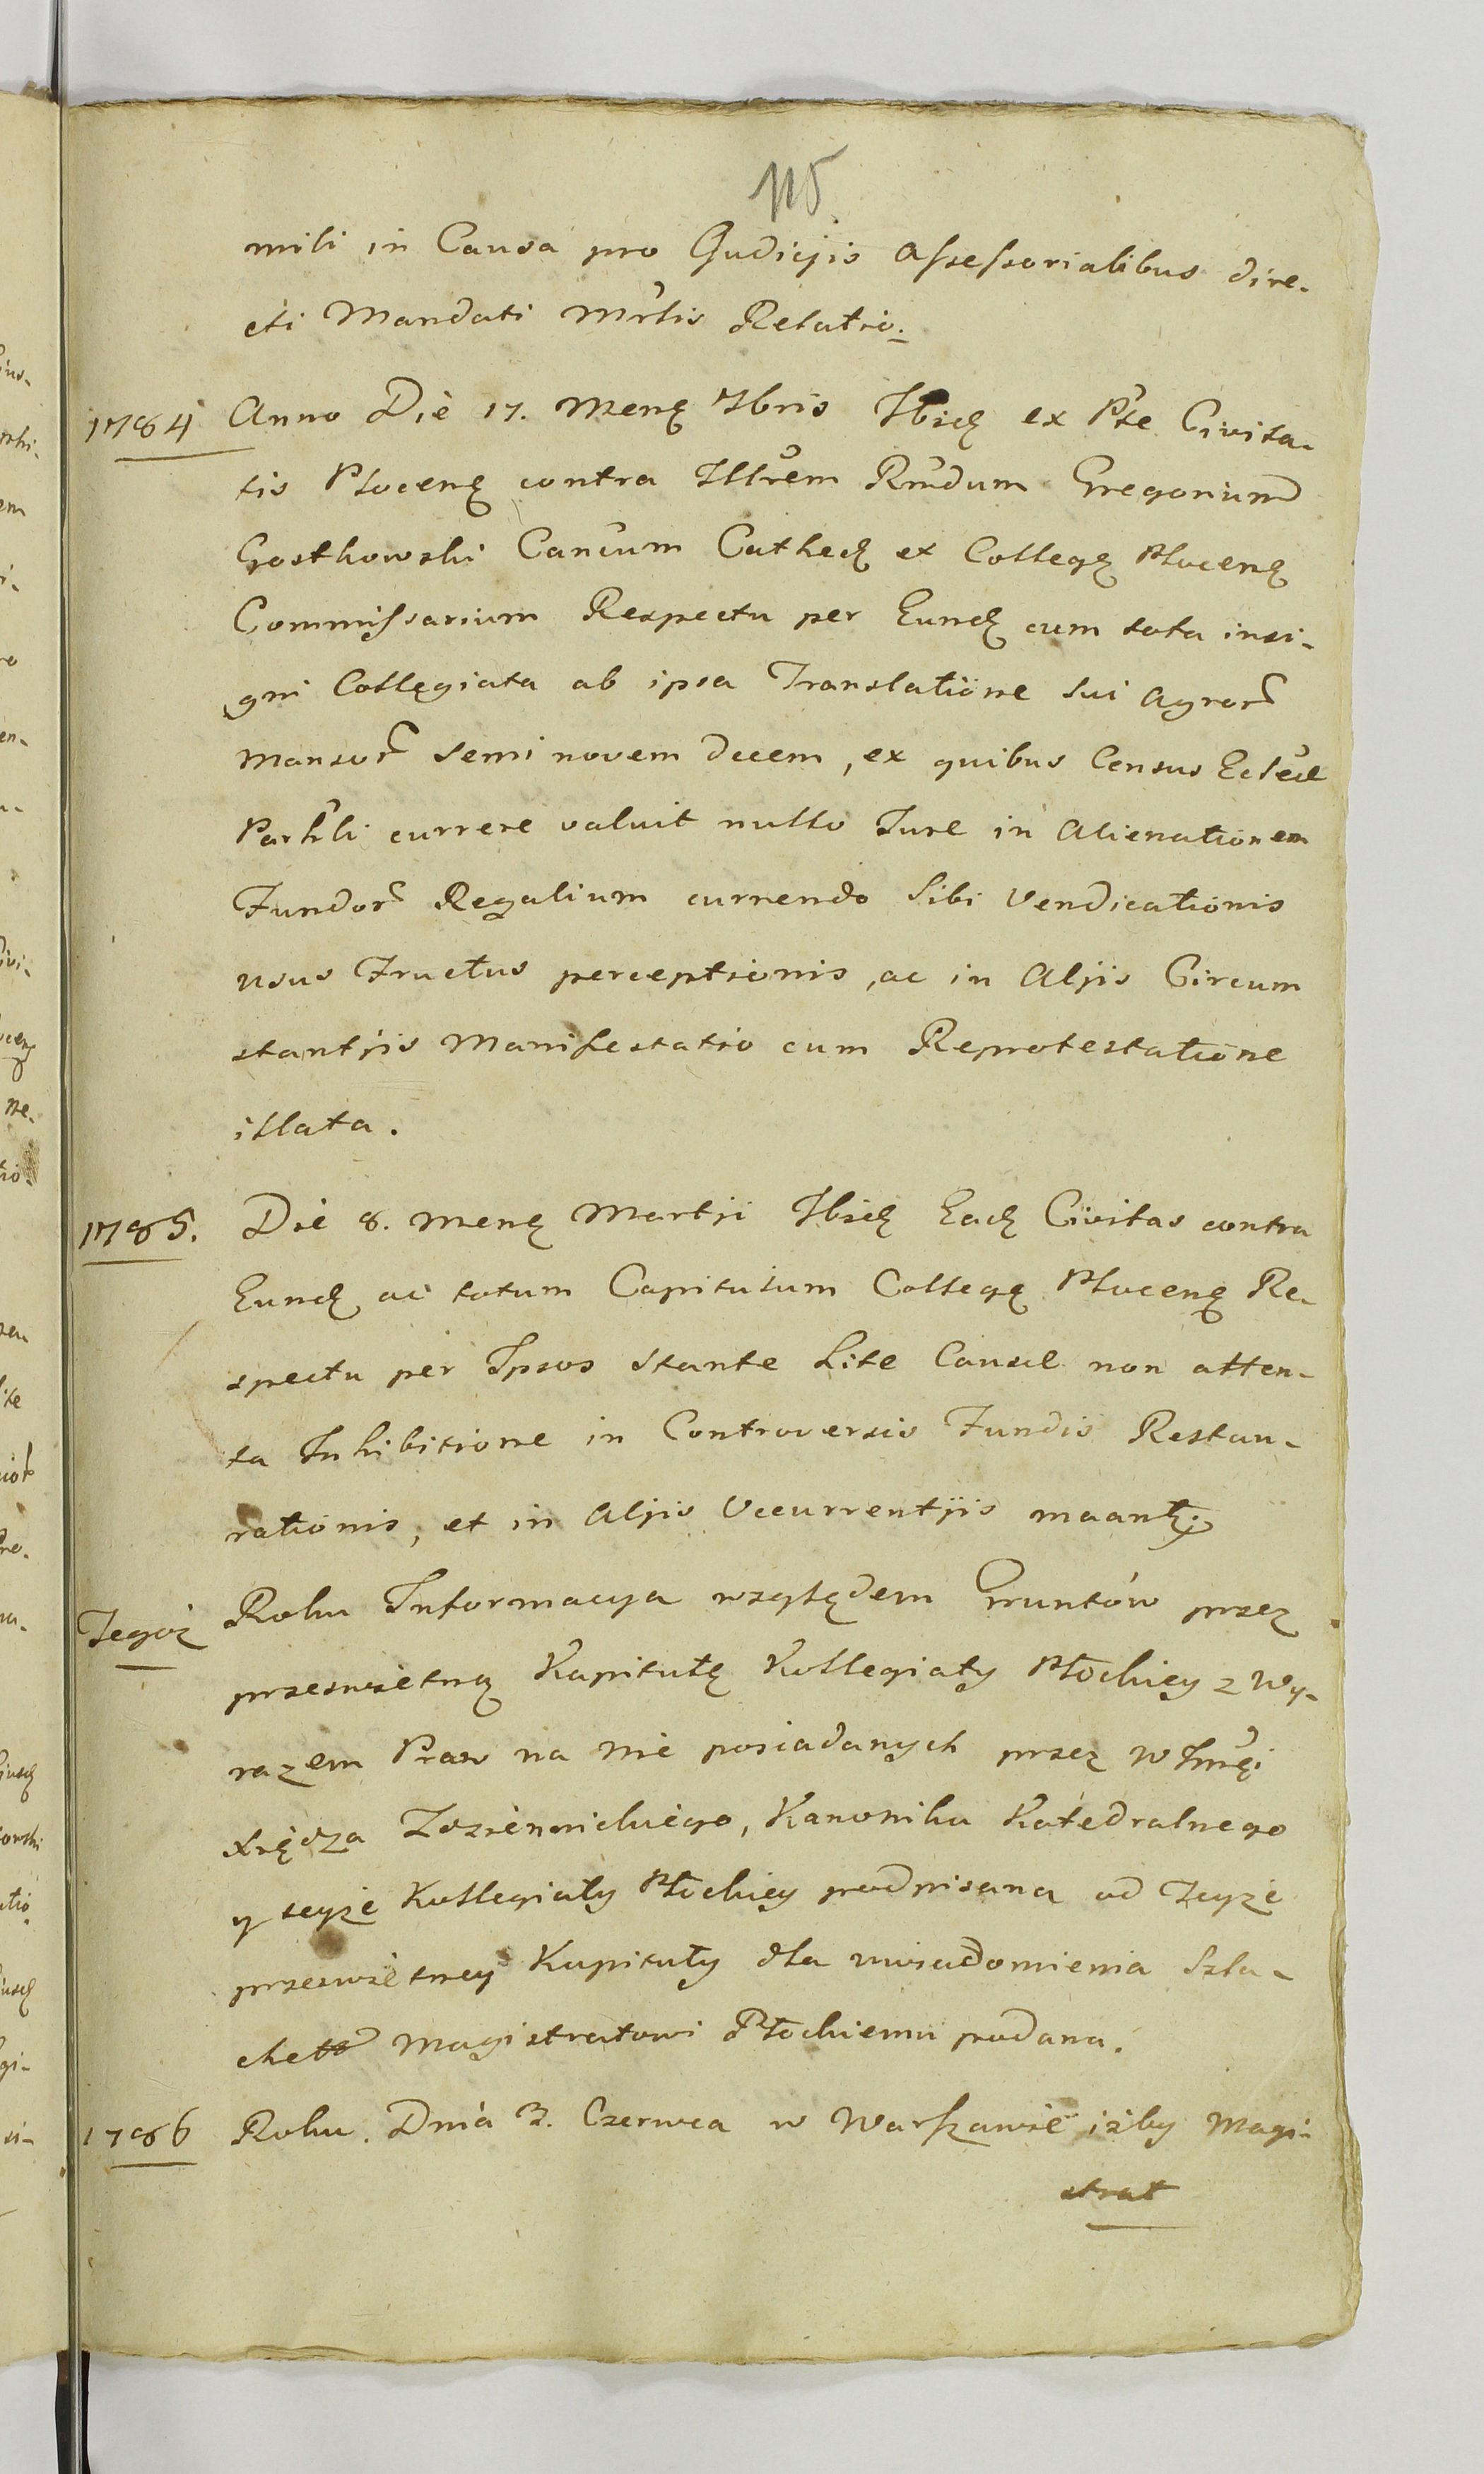 115
mili in Causa pro Judicijs Assessorialibus dire-
cti Mandati Mrlis Relatio.
1784 Anno Die 17. Menq 7bris Ibidq ex Pte Civita-
tis Plocenq contra Illrem Rndum Gregorium
Gostkowski Cancum Cathedq et Collegq Plocenq
Commissarium Respectu per Eundq cum tota insi-
gni Collegiata ab ipsa Translatione sui Agror
Mansor semi novem decem, ex quibus Census Eclae
Parhli currere valuit nullo Jure in Alienationem
Fundor Regalium currendo Sibi Vendicationis
usus Fructus perceptionis, ac in Alijs Circum
stantijs Manifestatio cum Reprotestatione
illata.
1785. Die 8. Menq Martij Ibidq Eadq Civitas contra
Eundq ac totum Capitulum Collegq Plocenq Re-
spectu per Ipsos Stante Lite Causae non atten-
ta Inhibitione in Controversis Fundis Restau-
rationis, et in Alijs Occurrentijs
Tegoż Roku Informacya względem Gruntów przez
przeswietną Kapitułę Kollegiaty Płockiey z Wy-
razem Praw na nie posiadanych przez W Jmci
Xiędza Zdziennickiego, Kanonika Katedralnego
y teyże Kollegiaty Płockiey podpisana od Teyże
przeswietney Kapituły dla uwiadomienia Szla-
chett Magistratowi Płockiemu podana.
1786 Roku. Dnia 3. Czerwca w Warszawie iżby Magi-
strat